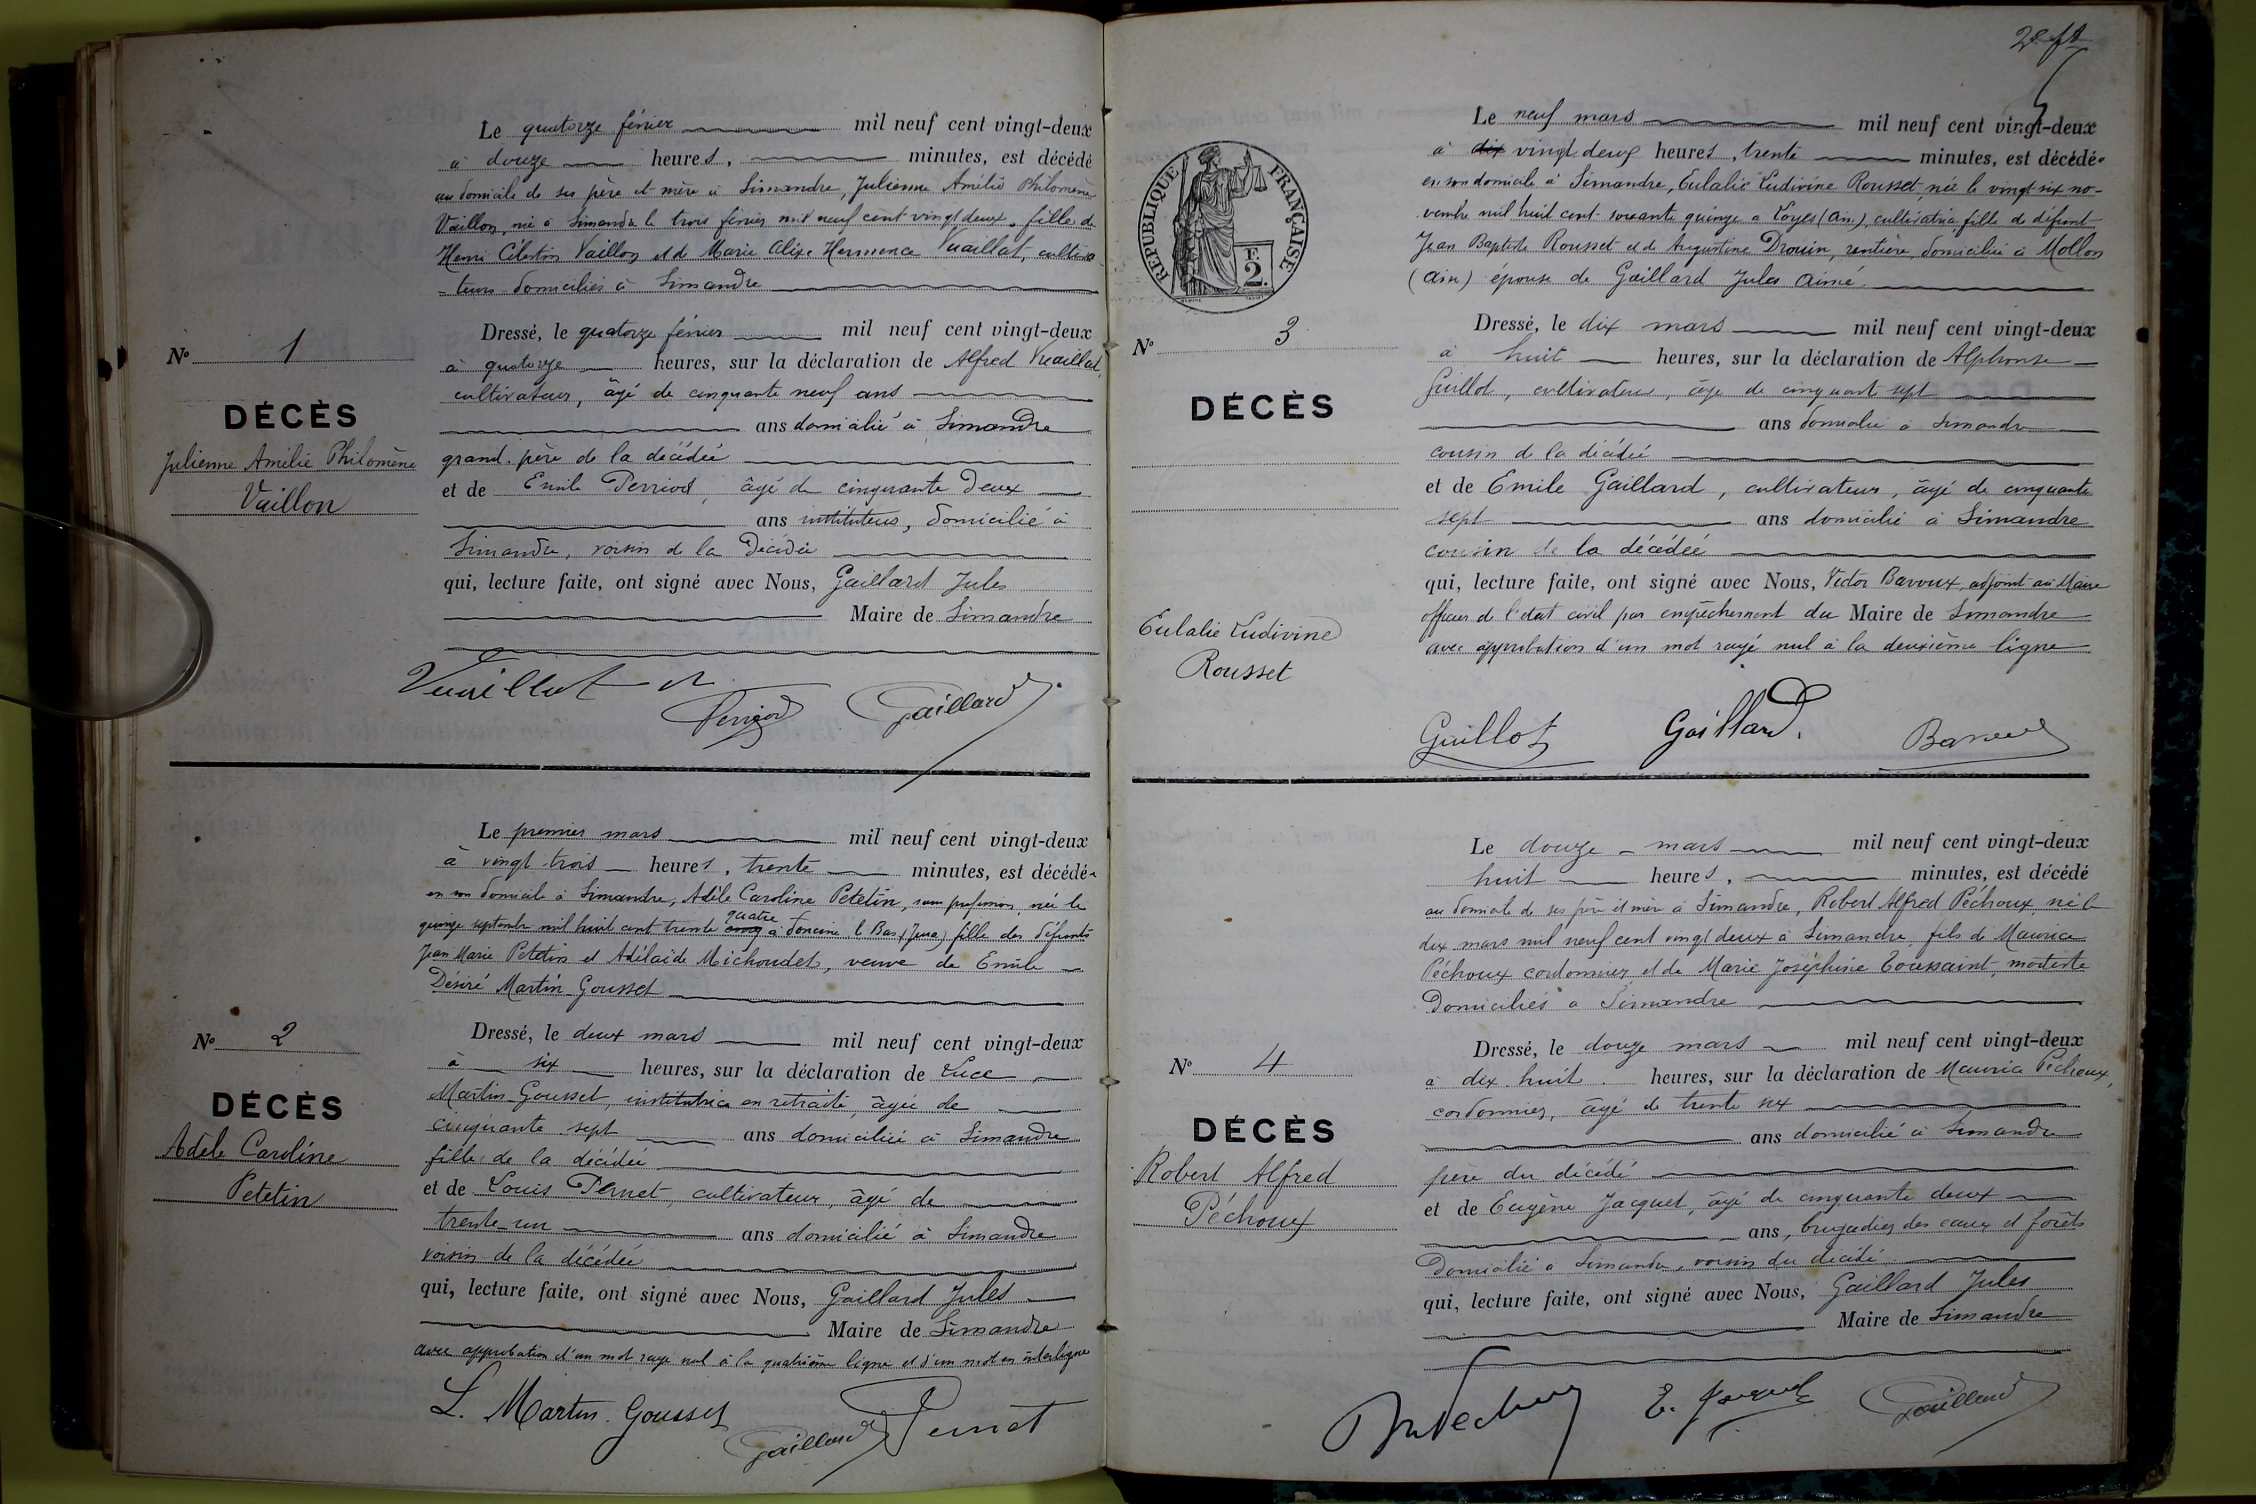 Le quatorze février mil neuf cent vingt-deux
à douze heures, minutes, est décédé
au domicile de ses père et mère à Simandre, Julienne Amélie Philomène
Vuillon, née à Simandre le trois février mil neuf cent vingt deux, fille de
Henri Célestin Vuillon et de Marie Alix Hermence Vuaillat, cultiva
-teurs domiciliés à Simandre
Dressé, le quatorze février mil neuf cent vingt-deux
à quatorze heures, sur la déclaration de Alfred Vuaillat,
cultivateur, âgé de cinquante neuf ans
ans domicilié à Simandre
grand-père de la décédée
et de Emile Perriod, âgé de cinquante deux
ans instituteur, domicilié à
Simandre, voisin de la décédée
qui, lecture faite, ont signé avec Nous, Gaillard Jules
Maire de Simandre
N° 1
DÉCÈS
Julienne Amélie Philomène
Vuillon
Vuaillat
Perriod Gaillard
Le premier mars mil neuf cent vingt-deux
à vingt trois heures, trente minutes, est décédée
en son domicile à Simandre, Adèle Caroline Petetin, sans profession, née le
quatre
quinze septembre mil huit cent trente cinq à Foncine le Bas (Jura) fille des défunts
Jean Marie Petetin et Adélaïde Michoudet, veuve de Emile
Désiré Martin-Gousset
Dressé, le deux mars mil neuf cent vingt-deux
à six heures, sur la déclaration de Luce
Martin-Gousset, institutrice en retraite, âgée de
cinquante sept ans domiciliée à Simandre
fille de la décédée
et de Louis Pernet, cultivateur, âgé de
trente-un ans domicilié à Simandre
voisin de la décédée
qui, lecture faite, ont signé avec Nous, Gaillard Jules
Maire de Simandre
avec approbation d'un mot rayé nul à la quatrième ligne et d'un mot en interligne
N° 2
DÉCÈS
Adèle Caroline
Petetin
L. Martin-Gousset
Gaillard Pernet
2e ft
RÉPUBLIQUE FRANÇAISE
2F.
Le neuf mars mil neuf cent vingt-deux
à dix vingt deux heures, trente minutes, est décédée
en son domicile à Simandre, Eulalie Ludivine Rousset, née le vingt six no-
vembre mil huit cent soixante quinze à Loyes (Ain), cultivatrice, fille de défunt
Jean Baptiste Rousset et de Augustine Drouin, rentière, domiciliée à Mollon
(Ain) épouse de Gaillard Jules Aimé
Dressé, le dix mars mil neuf cent vingt-deux
à huit heures, sur la déclaration de Alphonse
Guillot, cultivateur, âgé de cinquante sept
ans domicilié à Simandre
cousin de la décédée
et de Emile Gaillard, cultivateur, âgé de cinquante
sept ans domicilié à Simandre
cousin de la décédée
qui, lecture faite, ont signé avec Nous, Victor Bavoux, adjoint au Maire
officier de l'état civil par empêchement du Maire de Simandre
avec approbation d'un mot rayé nul à la deuxième ligne
N° 3
DÉCÈS
Eulalie Ludivine
Rousset
Guillot Gaillard. Bavoux
Le douze mars mil neuf cent vingt-deux
huit heures, minutes, est décédé
au domicile de ses père et mère à Simandre, Robert Alfred Péchoux, né le
dix mars mil neuf cent vingt deux à Simandre, fils de Maurice
Péchoux cordonnier et de Marie Joséphine Toussaint, modiste
Domiciliés à Simandre
Dressé, le douze mars mil neuf cent vingt-deux
à dix huit heures, sur la déclaration de Maurice Péchoux,
cordonnier, âgé de trente six
ans domicilié à Simandre
père du décédé
et de Eugène Jacquet, âgé de cinquante deux
ans, brigadier des eaux et forêts
Domicilié à Simandre, voisin du décédé
qui, lecture faite, ont signé avec Nous, Gaillard Jules
Maire de Simandre
N° 4
DÉCÈS
Robert Alfred
Péchoux
Péchoux E. Jacquet Gaillard